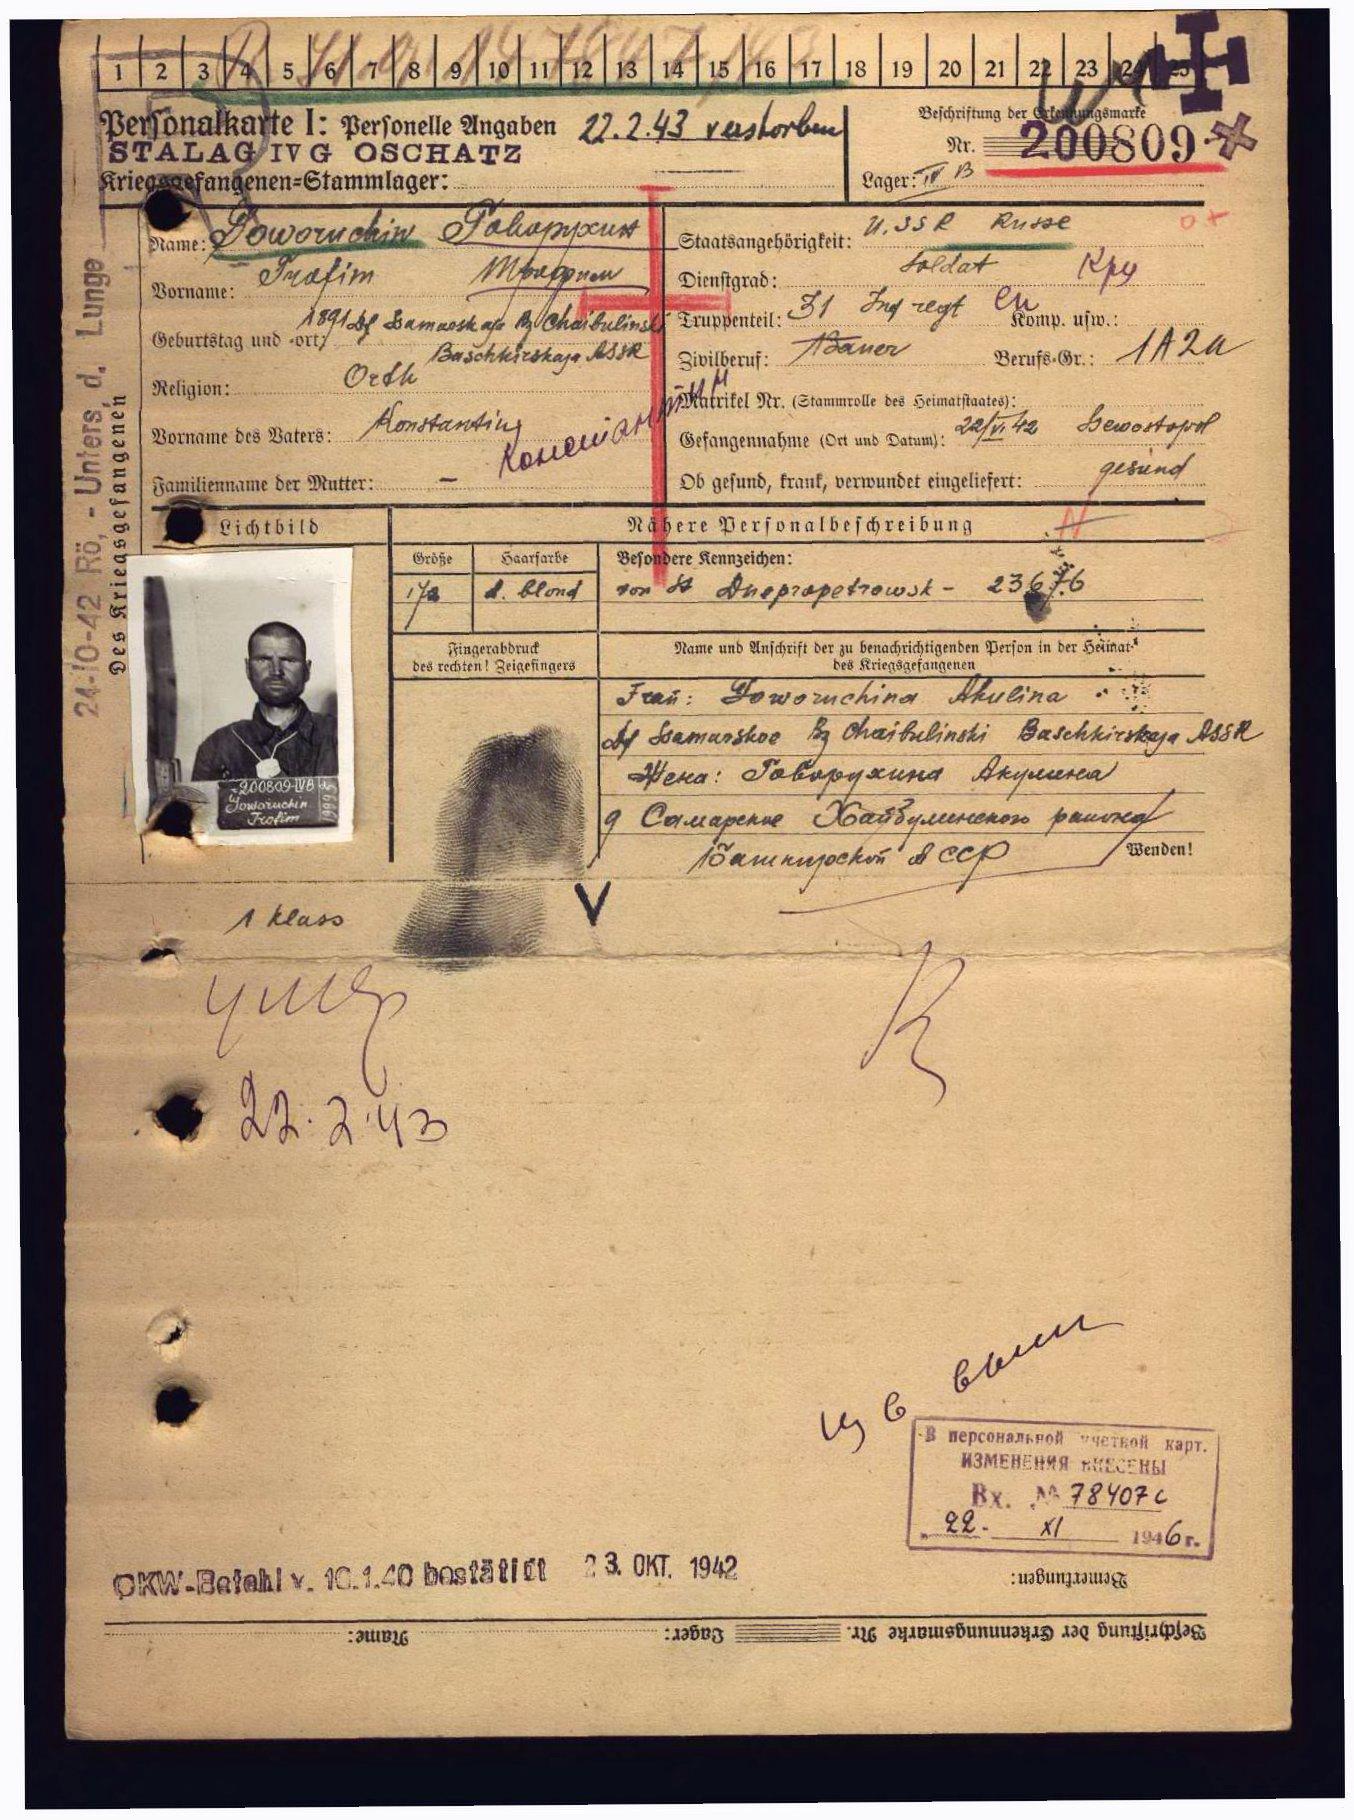 1 2 3 4 5 6 7 8 9 10 11 12 13 14 15 16 17 18 19 20 21 22 23 24 25
Personalkarte I: Personelle Angaben 22.2.43 verstorben
Beschriftung der Erkennungsmarke
STALAG IV G OSCHATZ
Nr. 200809
Kriegsgefangenen=Stammlager:
Lager: IV B
24-10-42 Rö, - Unters. d. Lunge
Des Kriegsgefangenen
Name: Goworuchin Говорухин
Staatsangehörigkeit: U.SSR Russe
Vorname: Trofim Трофим
Dienstgrad: Soldat Кру
Geburtstag und -ort: 1891 Df Samarskoje Bz Chaibulinski
Baschkirskaja ASSR
Truppenteil: 31 Inf regt Komp. usw.:
Zivilberuf: Bauer Berufs-Gr.: 1A2a
Religion: Orth
Matrikel Nr. (Stammrolle des Heimatstaates):
Vorname des Vaters: Konstantin Константин
Gefangennahme (Ort und Datum): 22/VI 42 Sewostopol
Familienname der Mutter: –
Ob gesund, krank, verwundet eingeliefert: gesund
Lichtbild
Nähere Personalbeschreibung
Größe Haarfarbe Besondere Kennzeichen:
172 d. blond von St Dnepropetrowsk - 23676
Fingerabdruck
des rechten! Zeigefingers
Name und Anschrift der zu benachrichtigenden Person in der Heimat
des Kriegsgefangenen
Frau: Goworuchina Akulina
Df Samarskoe Bz Chaibulinski Baschkirskaja ASSR
Жена: Говорухина Акулина
д Самарское Хайбулинского района
Башкирской АССР
Wenden!
200809-IVB
Goworuchin
Trofim
1 klass
V
умер
22.2.43
В персональной учетной карт.
ИЗМЕНЕНИЯ ВНЕСЕНЫ
Вх. № 78407с
„22- XI 1946 г.
OKW-Befehl v. 10.1.40 bestätigt 23. OKT. 1942
Bemerkungen:
Beschriftung der Erkennungsmarke Nr. Lager: Name: